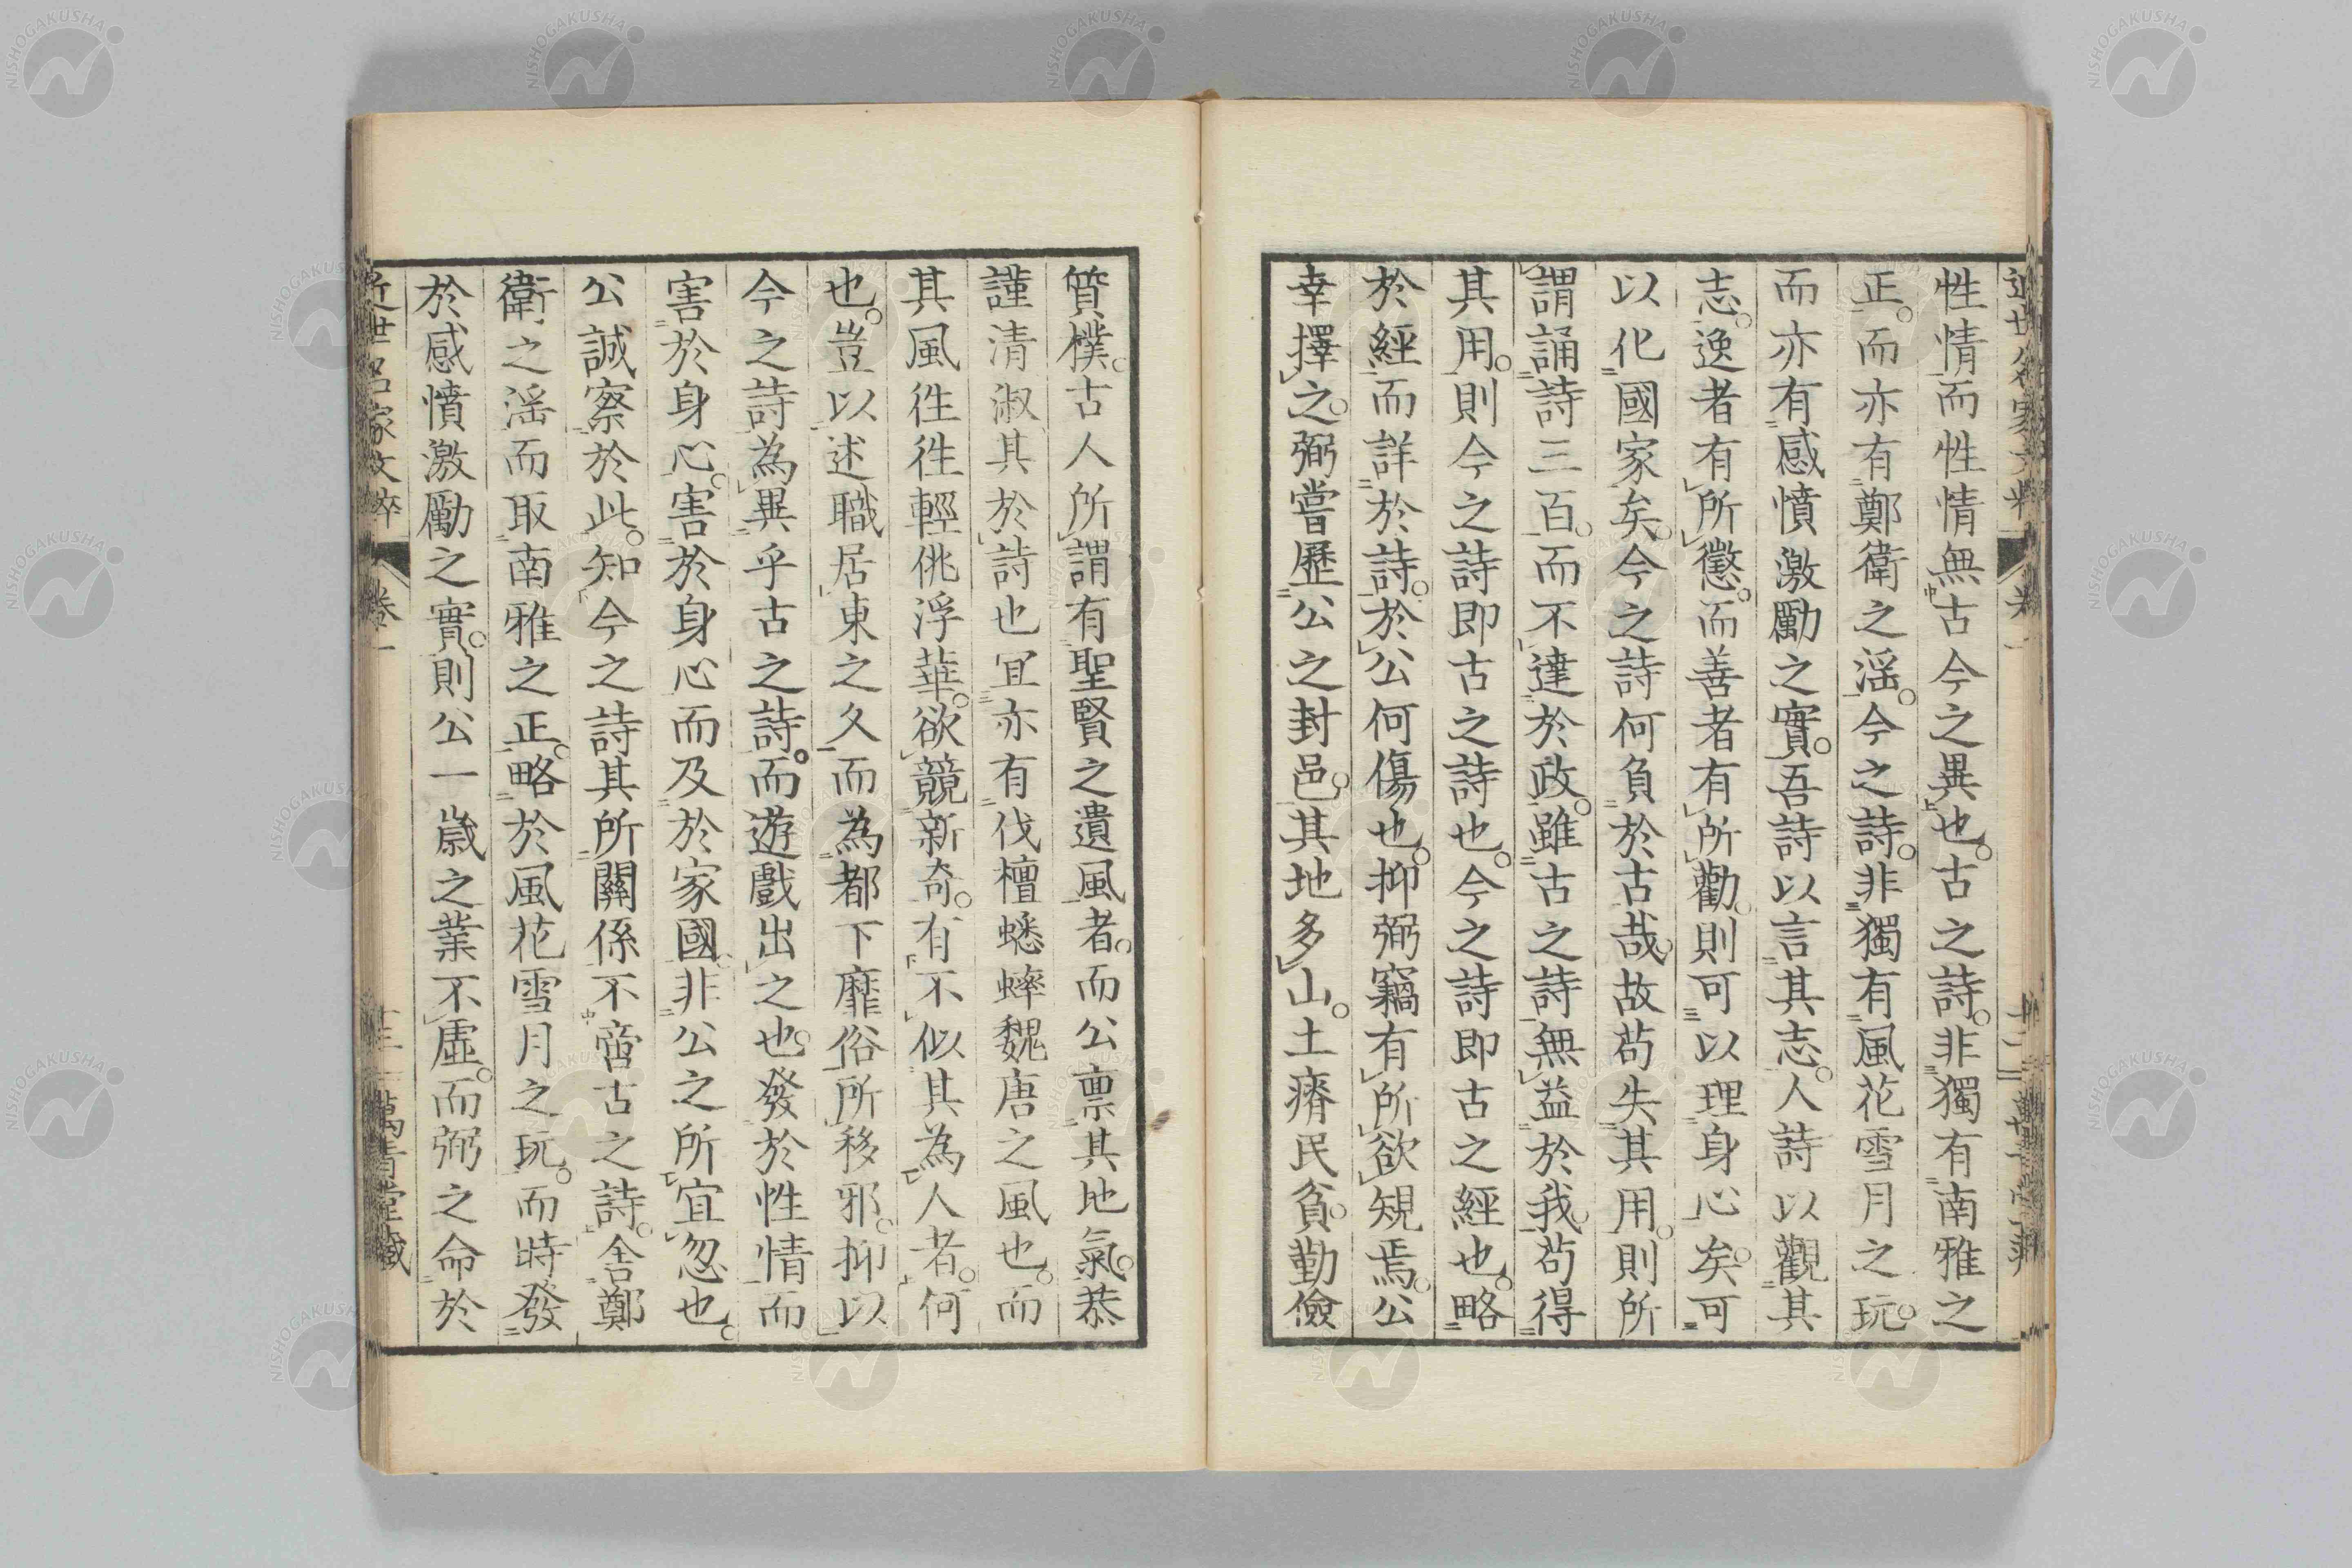 性情而性情無古今之異也。古之詩。非獨有南雅之
正。而亦有鄭衛之淫。今之詩。非獨有風花雪月之玩。
而亦有感憤激勵之實。吾詩以言其志。人詩以觀其
志。逸者有所懲。而善者有所勸。則可以理身心矣。可
以化國家矣。今之詩何負於古哉。故苟失其用。則所
謂誦詩三百。而不達於政。雖古之詩無益於我。苟得
其用。則今之詩即古之詩也。今之詩即古之經也。略
於經而詳於詩。於公何傷也。抑弼竊有所欲規焉。公
幸擇之。弼嘗歷公之封邑。其地多山。土瘠民貧。勤儉
質樸。古人所謂有聖賢之遺風者。而公禀其地氣。恭
謹清淑其於詩也宜亦有伐檀蟋蟀魏唐之風也。而
其風徃徃輕佻浮華。欲競新奇。有不似其為人者。何
也。豈以述職居東之久而為都下靡俗所移邪。抑以
今之詩為異乎古之詩。而遊戲出之也。發於性情而
害於身心。害於身心而及於家國。非公之所宜忽也。
公誠察於此。知今之詩其所關係不啻古之詩。舍鄭
衛之淫而取南雅之正。略於風花雪月之玩。而時發
於感憤激勵之實。則公一歲之業不虛。而弼之命於
近世名家文粹 卷一 十三 萬青堂藏
NISHOGAKUSHA